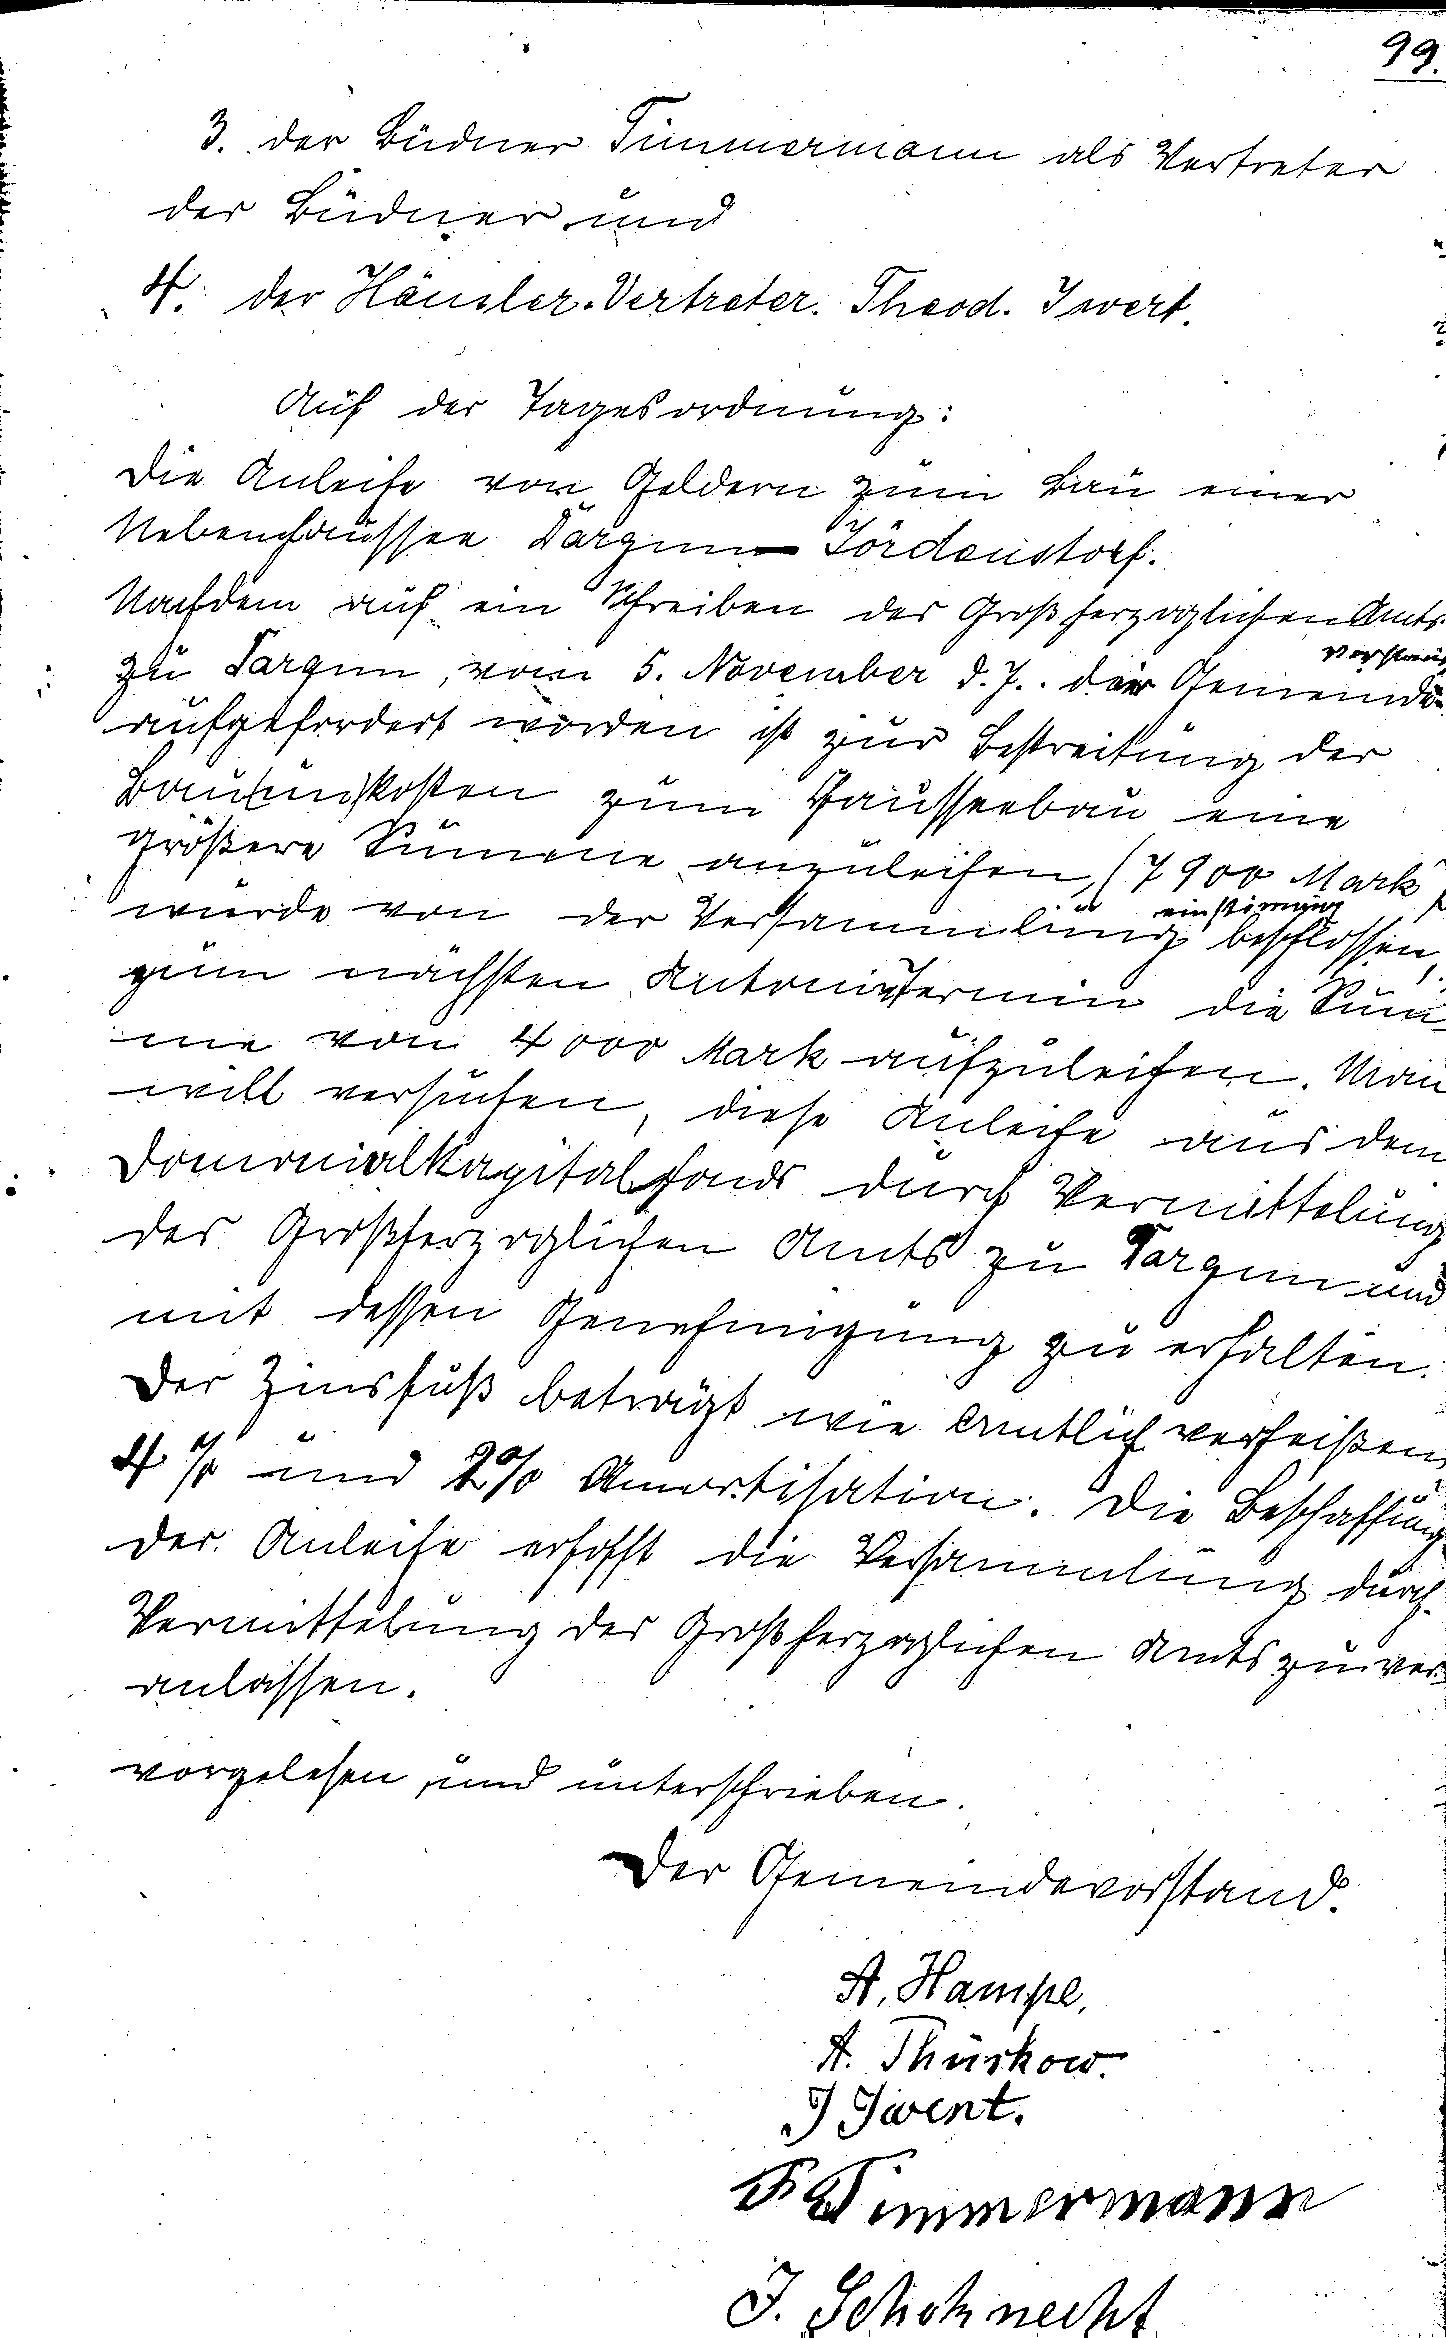 99.
3. der Büdner Timmermann als Vertreter
der Büdner und
4. der Häusler-Vertreter. Theod. Iwert.
Auf der Tagesordnung:
Die Anleihe von Geldern zum Bau einer
Nebenchaussee Dargun – Jördenstorf.
Nachdem auf ein Schreiben des Großherzoglichen Amts
zu Dargun, vom 5. November d. J. der Gemeinde-
vorstand
aufgefordert worden ist zur Bestreitung der
kosten zum Chausseebau eine
größere Summe anzuleihen, (7900 Mark)
wurde von der Versammlung einstimmig beschlossen,
zum nächsten Antonitermin die Sum-
me von 4000 Mark aufzuleihen. Man
will versuchen, diese Anleihe aus dem
Domanialkapitalfonds durch Vermittelung
des Großherzoglichen Amts zu Dargun und
mit dessen Genehmigung zu erhalten.
Der Zinsfuß beträgt wie amtlich verheißen,
4 % und 2% Amortisation. Die Beschaffung
der Anleihe erhofft die Versammlung durch
Vermittelung des Großherzoglichen Amts zu ver-
anlassen.
vorgelesen und unterschrieben.
Der Gemeindevorstand.
A. Hampe.
A. Thürkow.
J Iwent.
Timmermann
J. Schohnecht